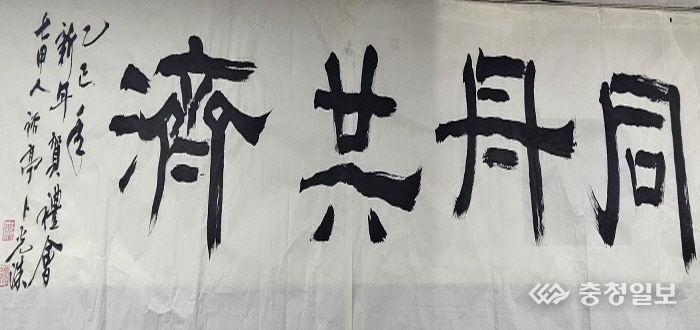 同舟共濟
乙巳年
新年賀禮會
甲人 亭 卜光洙
충청일보